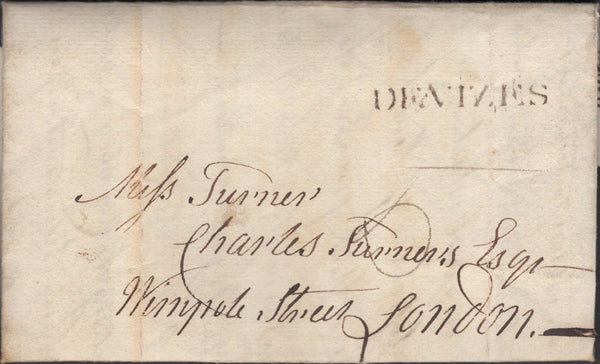 DEVIZES
Miſs Turner
Charles Turners Esqr
Wimpole Street London.